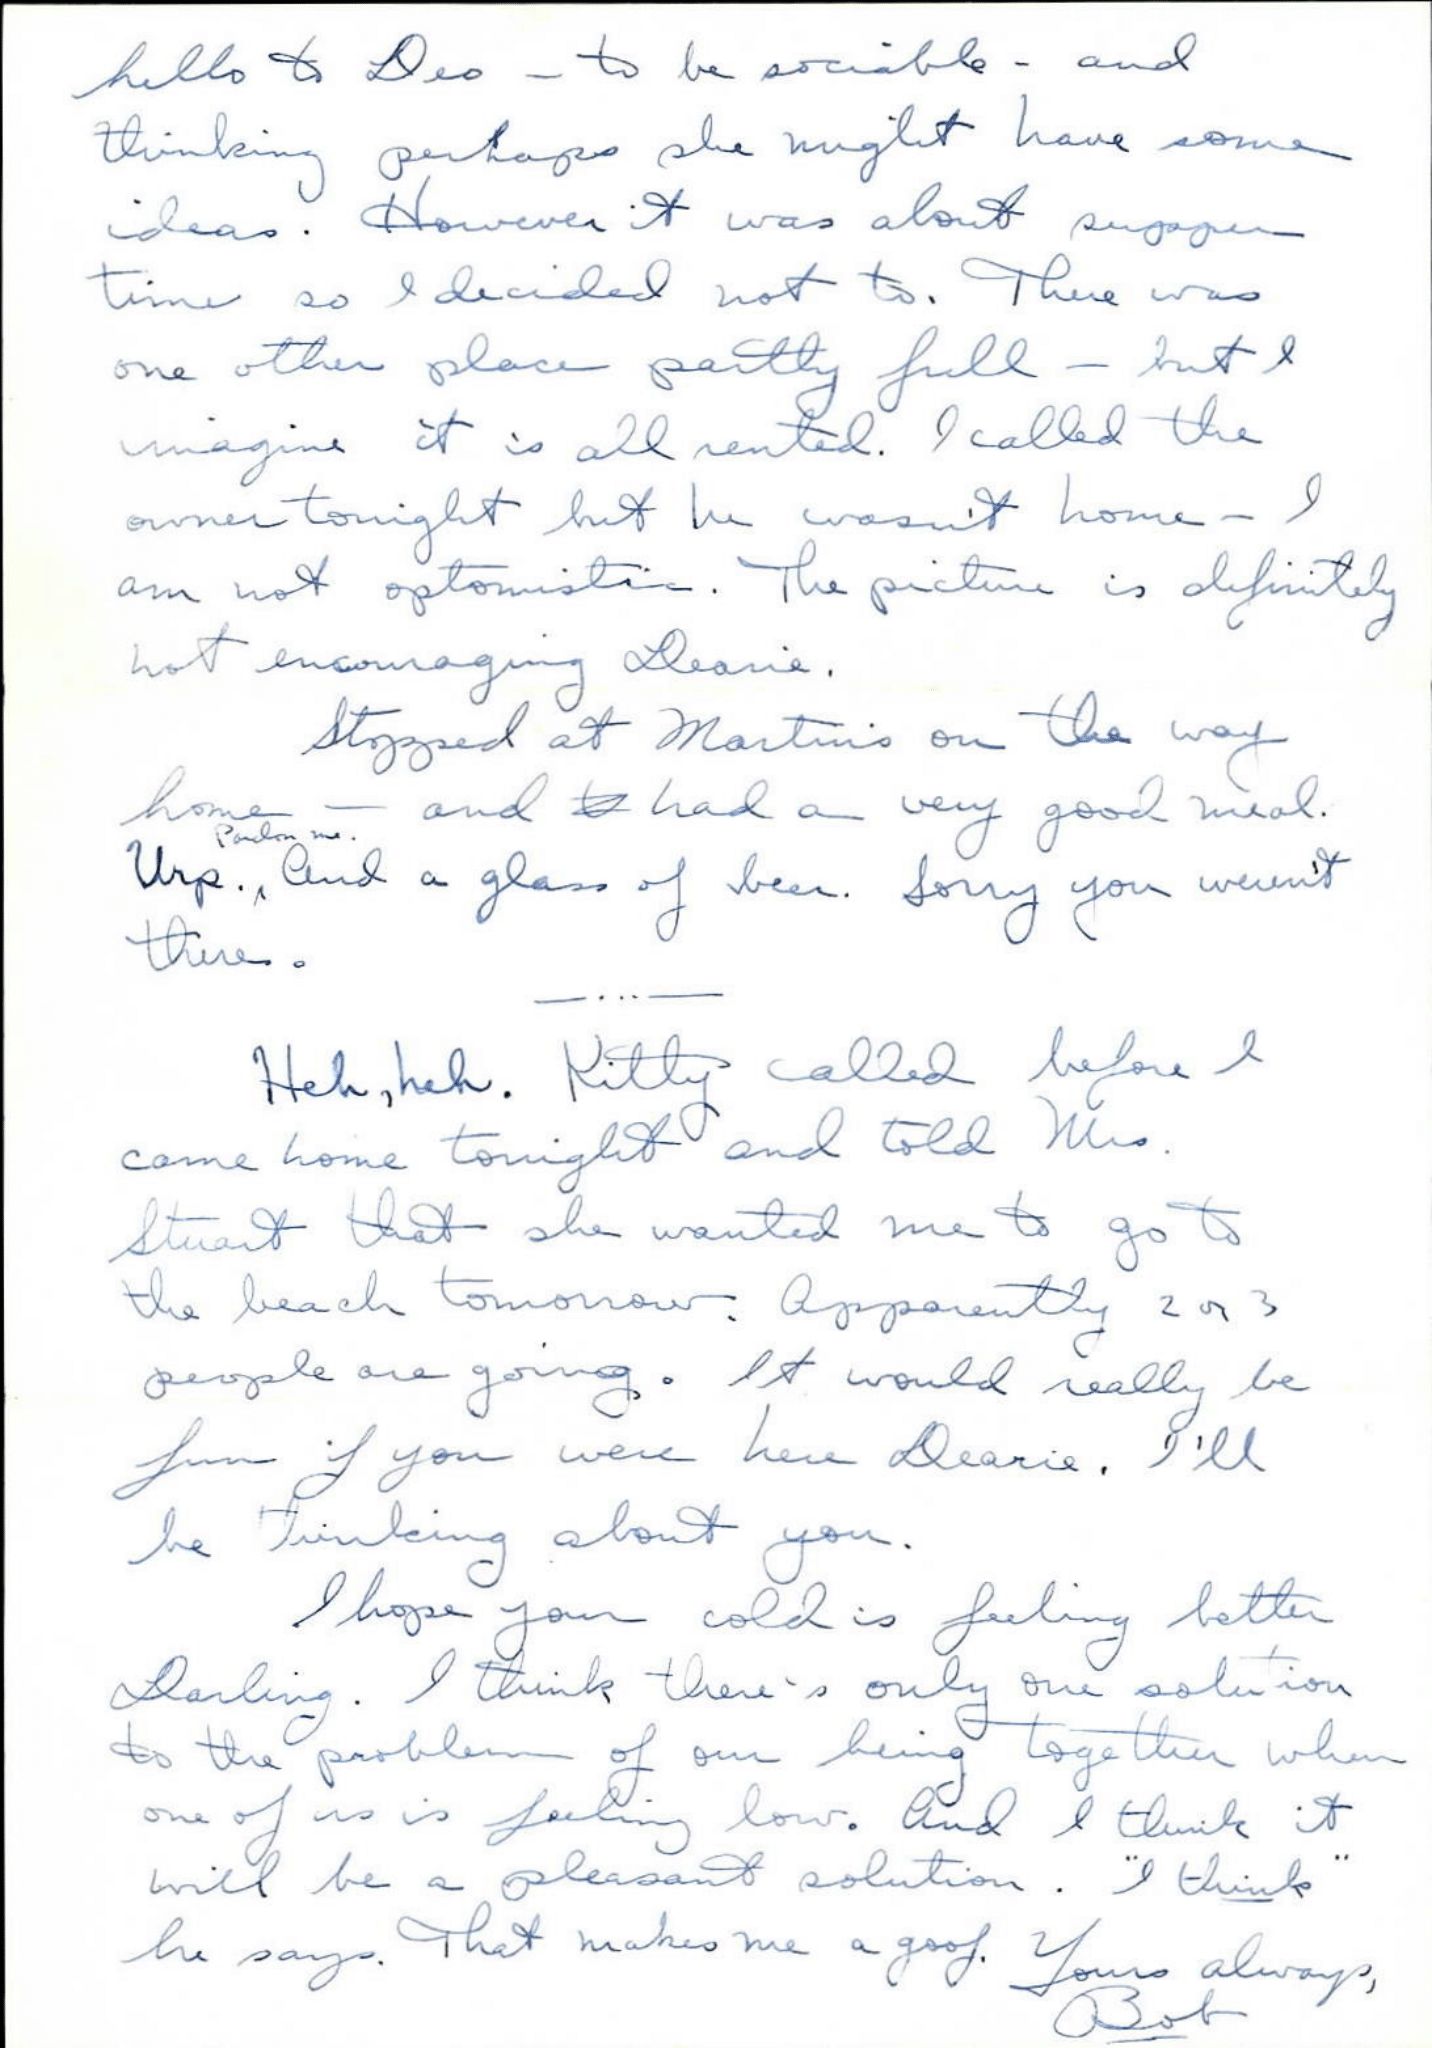 hello to Deo - to be sociable - and
thinking perhaps she might have some
ideas. However it was about supper
time so I decided not to. There was
one other place partly full - but I
imagine it is all rented. I called the
owner tonight but he wasn't home - I
am not optomistic. The picture is definitely
not encouraging Dearie.
Stopped at Martin's on the way
home - and had a very good meal.
Pardon me.
Urp. And a glass of beer. Sorry you weren't
there.
Heh, heh. Kitty called before I
came home tonight and told Mrs.
Stuart that she wanted me to go to
the beach tomorrow. Apparently 2 or 3
people are going. It would really be
fun if you were here Dearie. I'll
be thinking about you.
I hope your cold is feeling better
Darling. I think there's only one solution
to the problem of our being together when
one of us is feeling low. And I think it
will be a pleasant solution. "I think"
he says. That makes me a goof. Yours always,
Bob